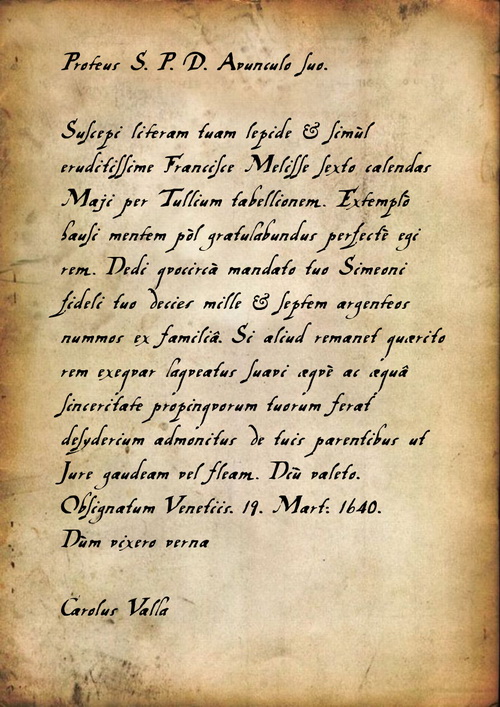 Proteus S. P. D. Avunculo ſuo.
Suſcepi literam tuam lepide & ſimùl
eruditiſſime Franciſce Meliſſe ſexto calendas
Maji per Tullium tabellionem. Extemplò
hauſi mentem pòl gratulabundus perfectè egi
rem. Dedi qvocircà mandato tuo Simeoni
fideli tuo decies mille & ſeptem argenteos
nummos ex familiâ. Si aliud remanet quærito
rem exeqvar laqveatus ſuavi æqvè ac æquâ
ſinceritate propinqvorum tuorum ferat
deſyderium admonitus de tuis parentibus ut
Jure gaudeam vel fleam. Diù valeto.
Obſignatum Venetiis. 19. Mart: 1640.
Dùm vixero verna
Carolus Valla